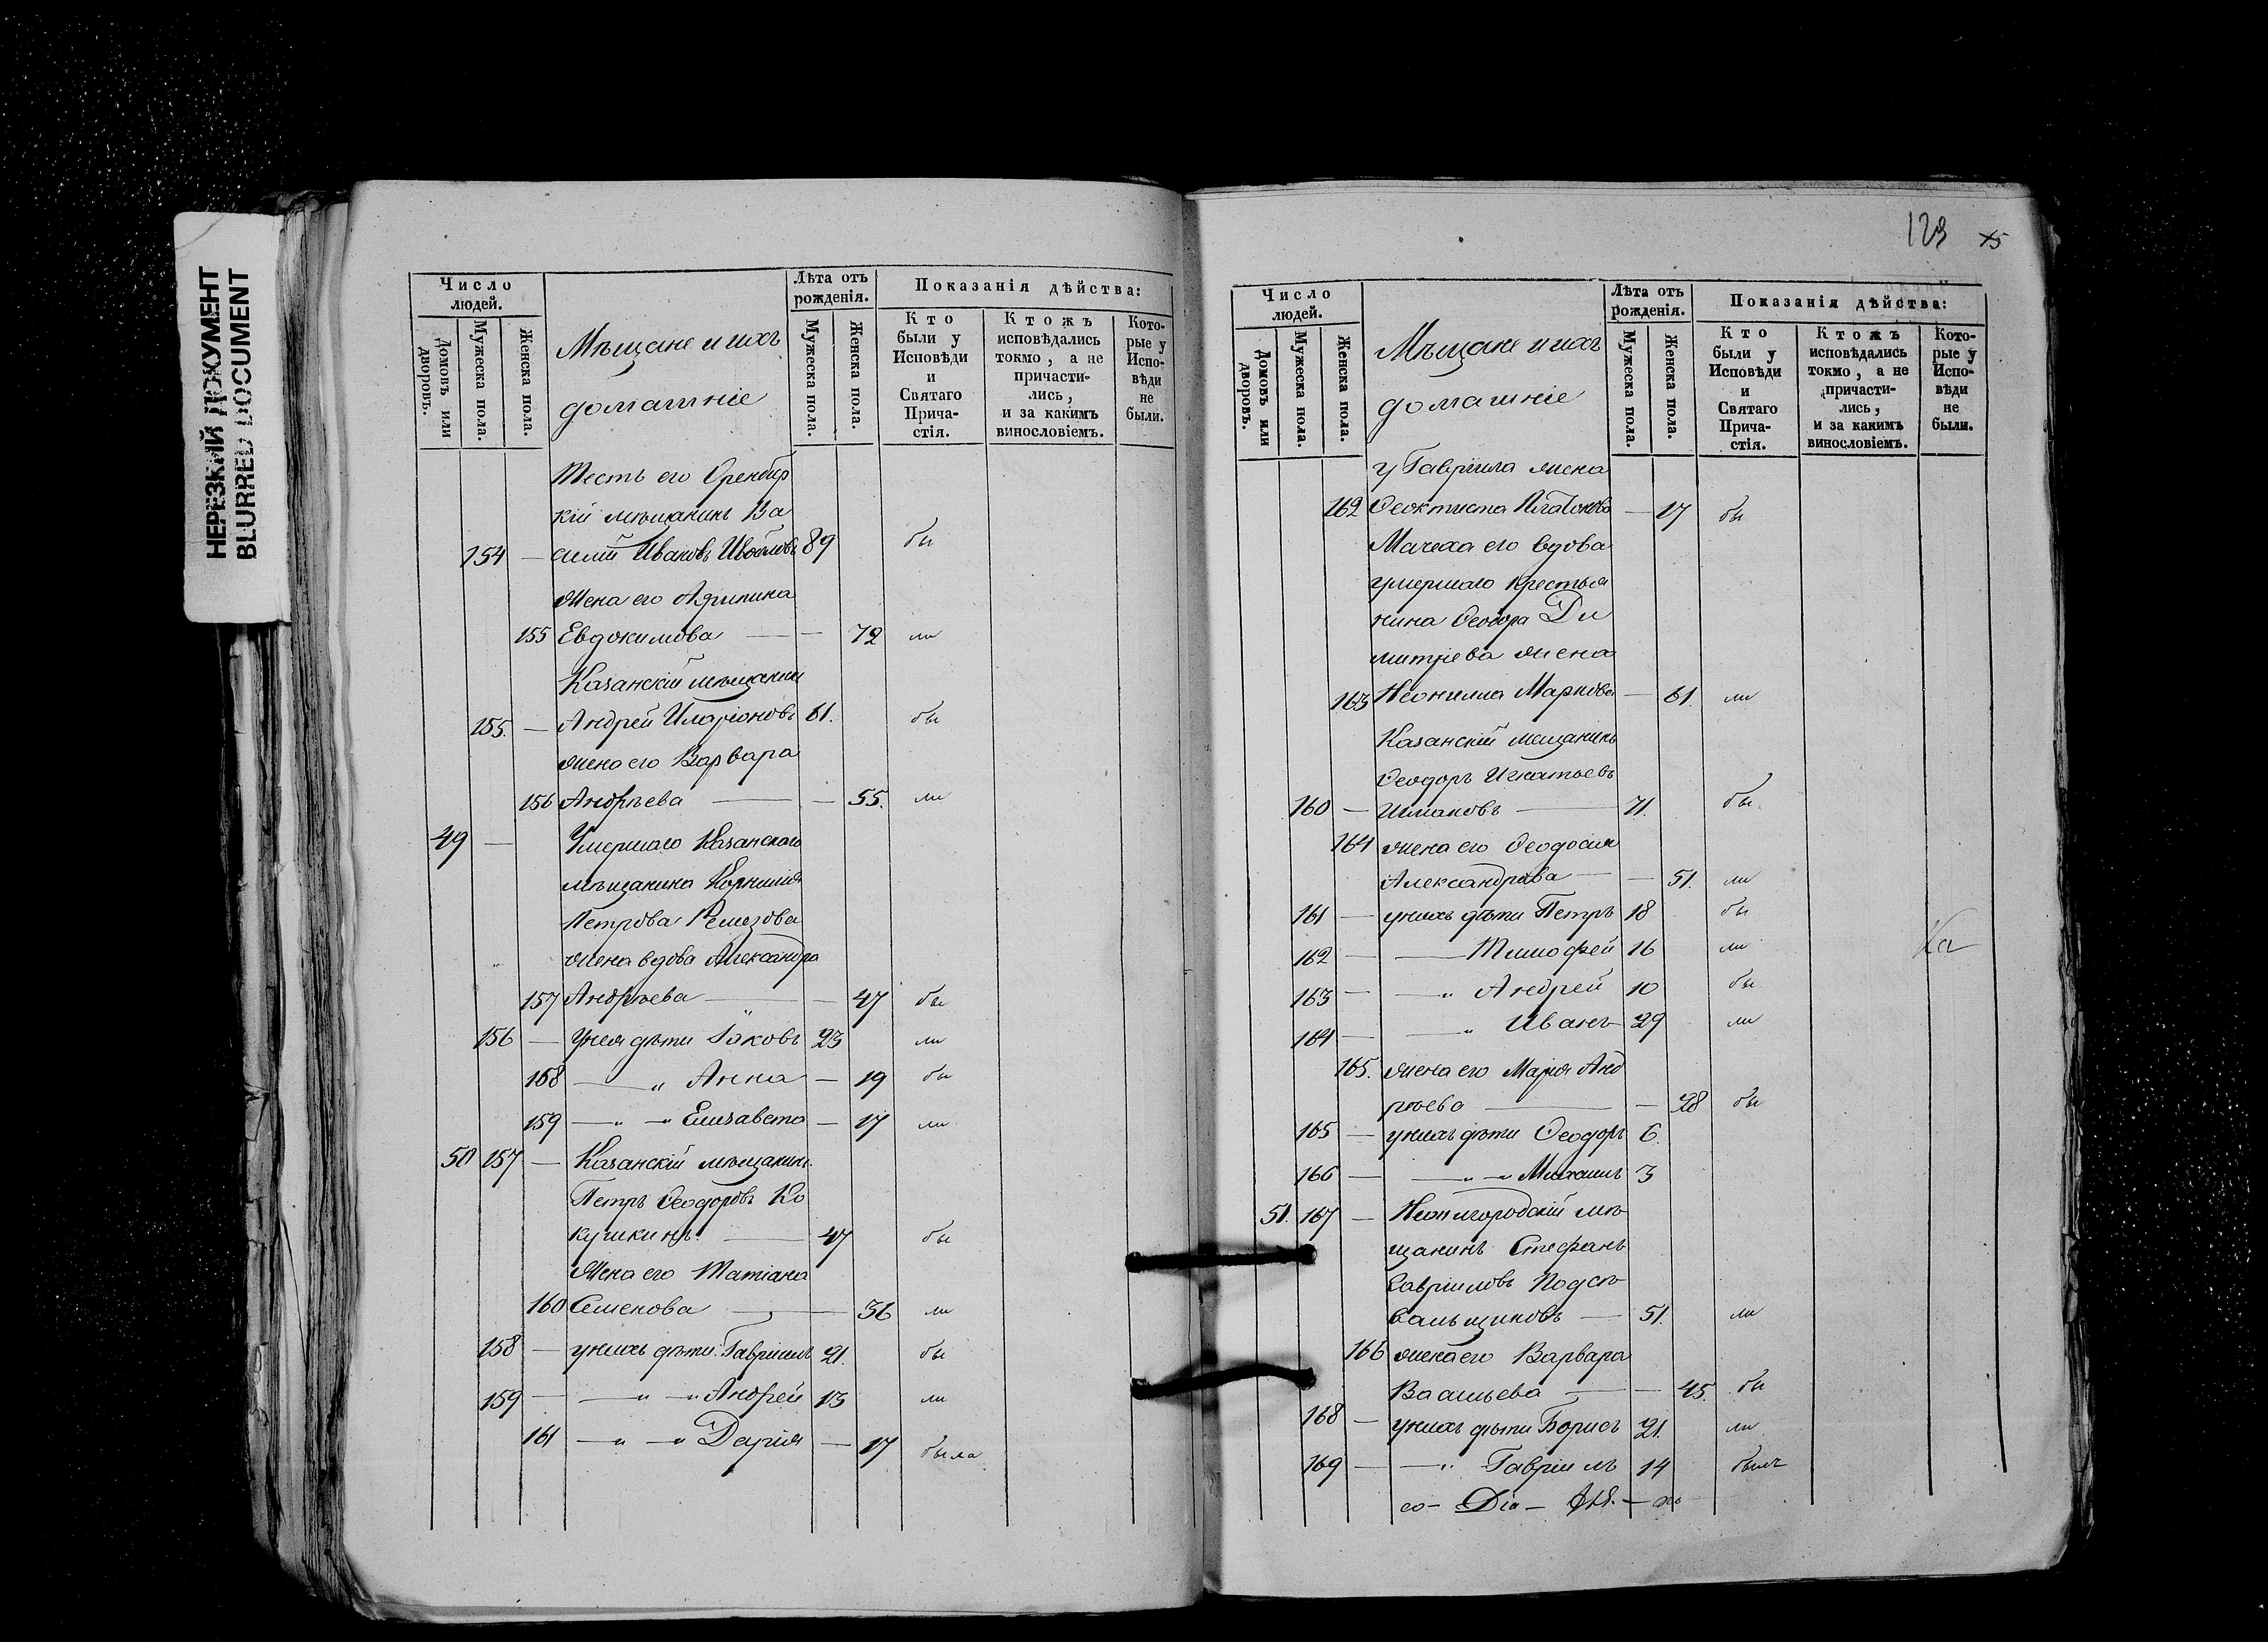 НЕРЕЗКИЙ ДОКУМЕНТ
BLURRED DOCUMENT
Число людей.
Домовъ или дворовъ.
Мужеска пола.
Женска пола.
Мѣщане и ихъ
домашніе
Лѣта отъ рожденія.
Мужеска пола.
Женска пола.
Показанія дѣйства:
Кто были у Исповѣди и Святаго Причастія.
Ктожъ исповѣдались токмо, а не причастились, и за какимъ винословіемъ.
Которые у Исповѣди не были.
Тесть его Оренбур
кій мѣщанинъ Ва
154 — силій Ивановъ 89 бы
Жена его Агрипина
155 Евдокимова — — 72 ли
Казанскій мѣщанин
155. — Андрей Иларіоновъ 61. бы
жена его Варвара
156 Андрѣева — — 55. ли
49 — Умершаго Казанскаго
мѣщанина Корнилія
Петрова Ремезова
жена вдова Александра
157 Андрѣева — — 47 бы
156 — У нея дѣти Іаковъ 23 ли
158 — „ Анна — 19 бы
159 — „ — „ Елизавета — 17 ли
50 157 — Казанскій мѣщанинъ
Петръ Ѳеодоровъ Ко
кушкинъ. — 47 бы
Жена его Татіана
160 Семенова — — 36 ли
158 — у нихъ дѣти: Гавріилъ 21. бы
159 — — „ — „ Андрей 13 ли
161 — „ — „ Дарія — 17 была
123 75
Число людей.
Домовъ или дворовъ.
Мужеска пола.
Женска пола.
Мѣщане и ихъ
домашніе
Лѣта отъ рожденія.
Мужеска пола.
Женска пола.
Показанія дѣйства:
Кто были у Исповѣди и Святаго Причастія.
Ктожъ исповѣдались токмо, а не причастились, и за какимъ винословіемъ.
Которые у Исповѣди не были.
у Гавріила жена
162 Ѳеоктиста Платонова — 17 бы
Мачеха его вдова
умершаго крестья
нина Ѳеодора Ди
митріева жена
163 Неонилла Маркова — 61. ли
Казанскій мещанинъ
Ѳеодоръ Игнатьевъ
160 — Шмаковъ — 71. бы.
164 жена его Ѳеодосія
Александрова — — 51. ли
161 — у нихъ дѣти Петръ 18 бы
162 — — Тимофей 16 ли Ка
163 — — „ Андрей 10 бы
164 — — „ Иванъ 29 ли
165. жена его Марія Анд
рѣева — — 28 бы
165 — у нихъ дѣти Ѳеодоръ 6.
166 — — „ — „ Михаилъ 3
51. 167 — Нижегородскій мѣ-
щанинъ Стефанъ
Гавріиловъ Подсѣ-
вальщиковъ — 51. ли
166 жена его Варвара
Васильева — — 45. бы
168 — у нихъ дѣти Борисъ 21. ли
169 — — „ Гавріилъ 14 былъ
со — Діа —